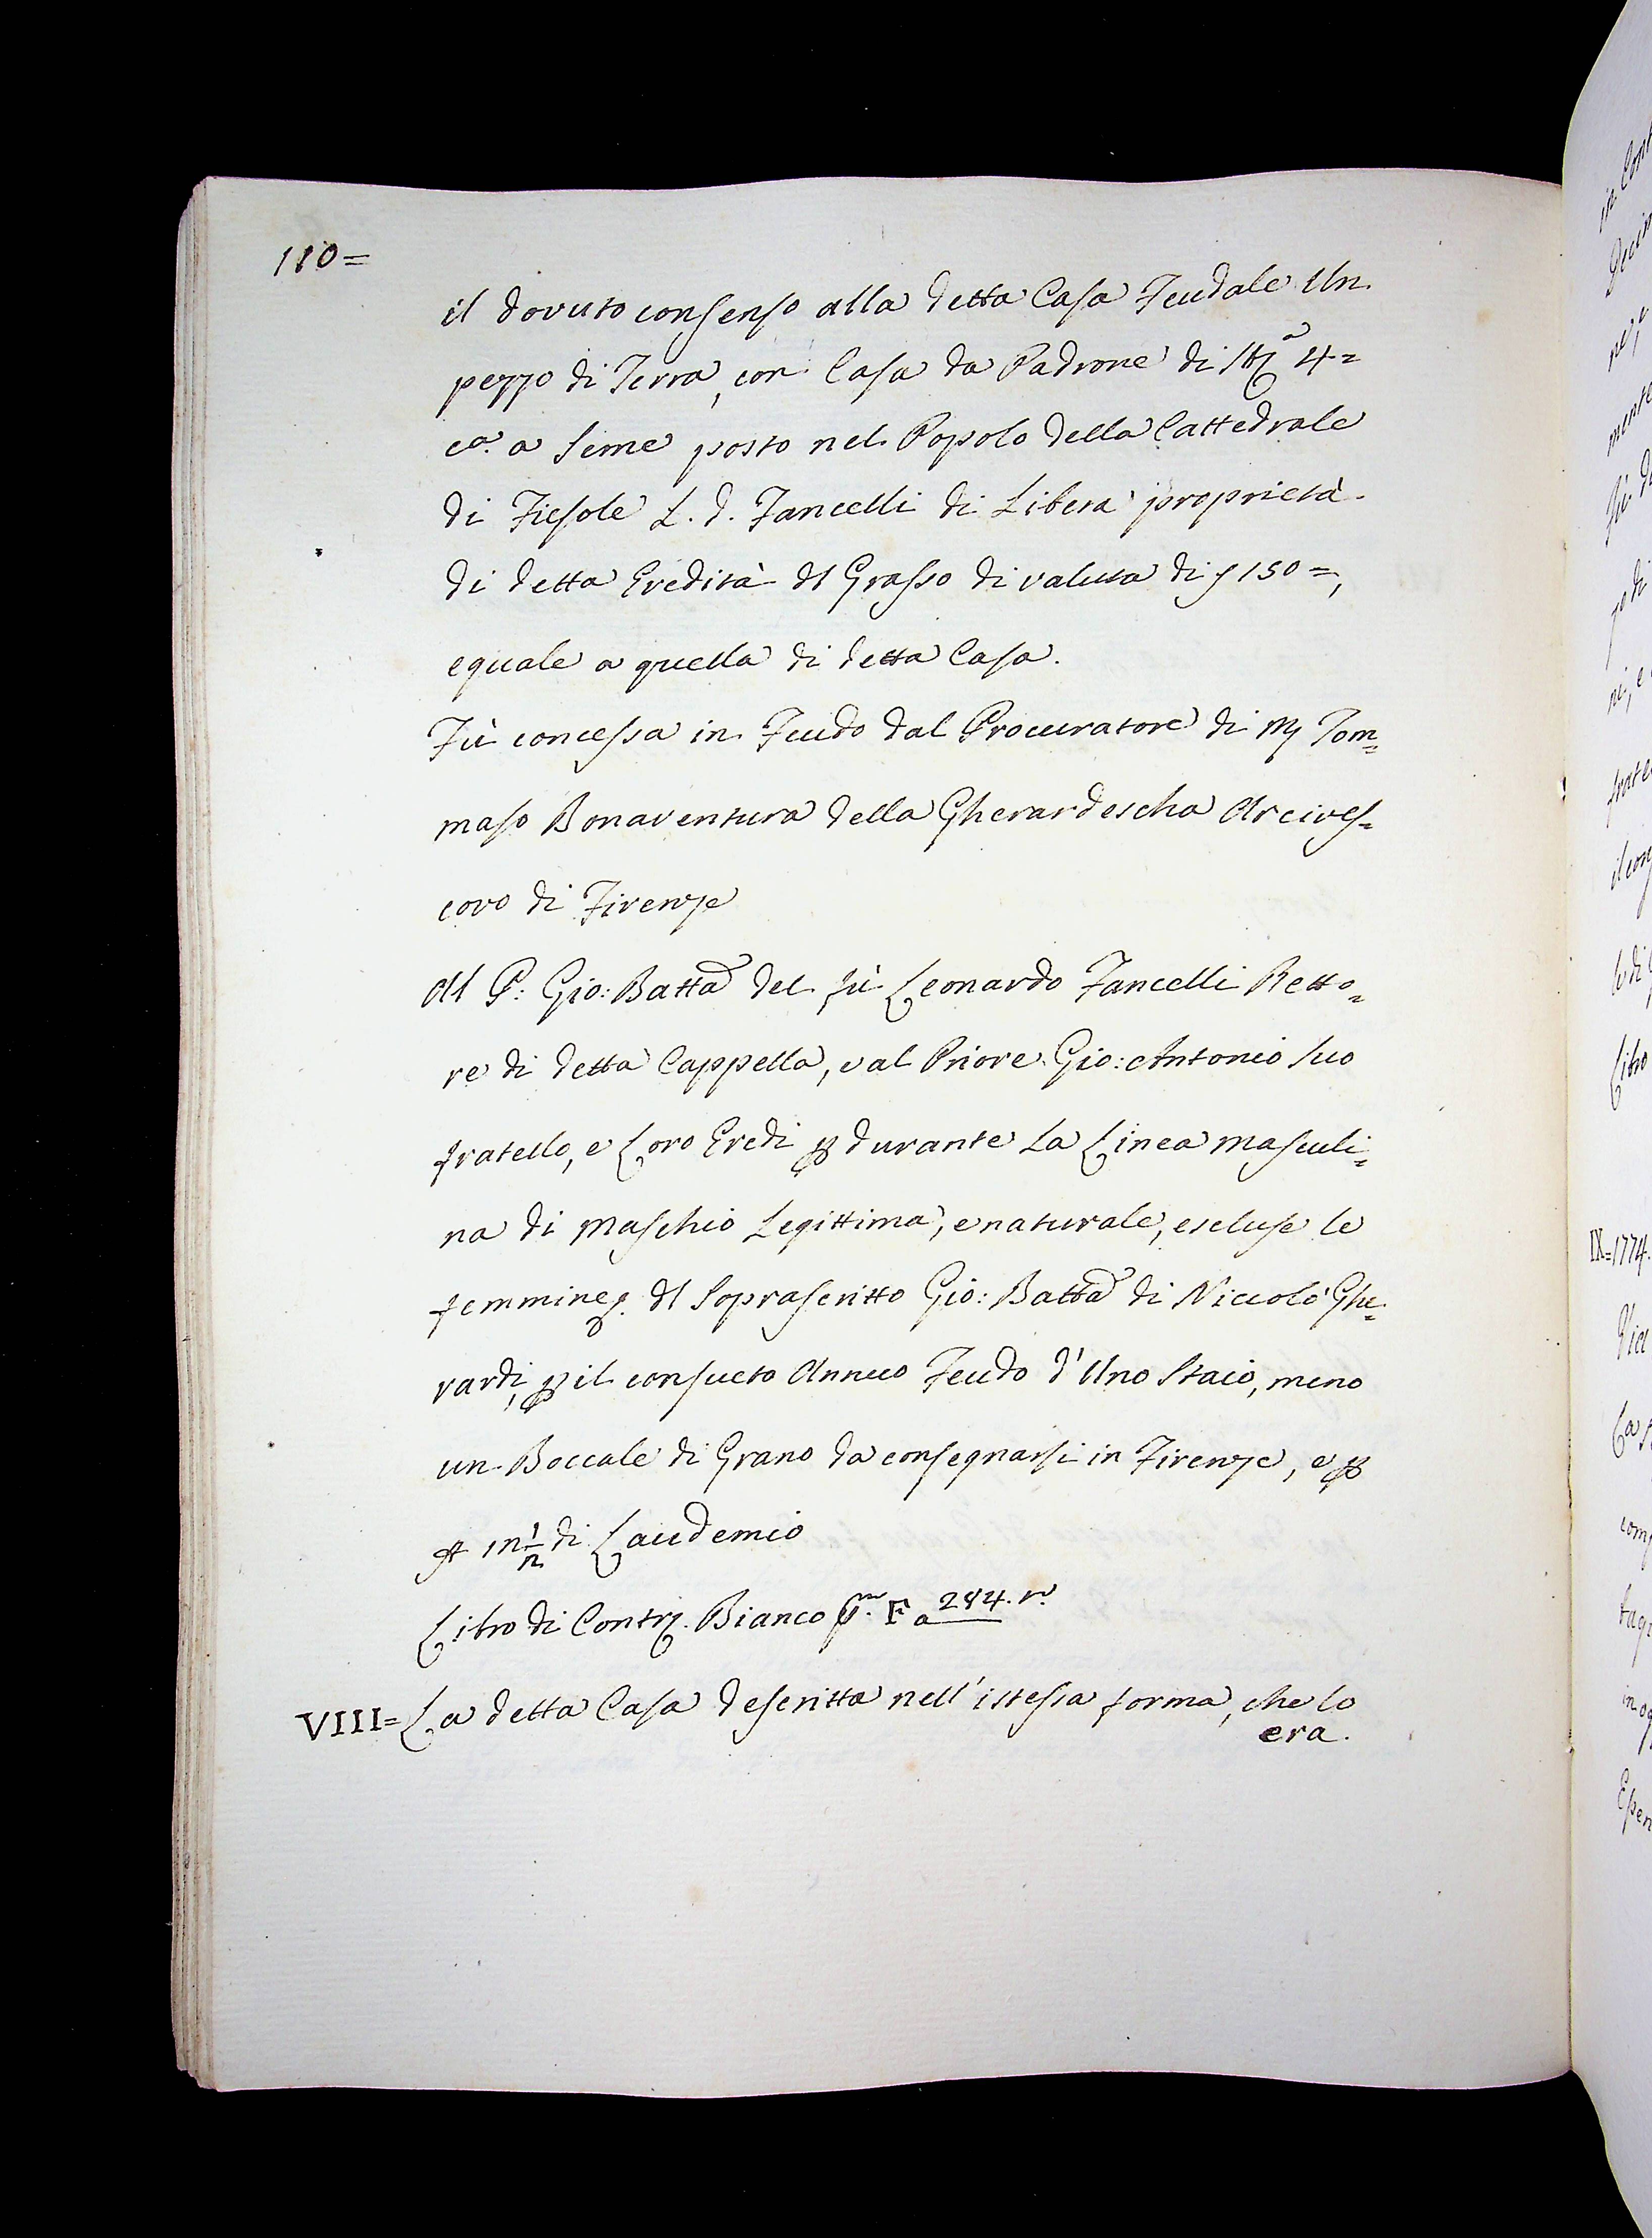 110=
il dovuto consenso alla detta Casa Feudale Un
pezzo di Terra, con Casa da Padrone di 4=
ca. a seme posto nel Popolo della Cattedrale
di Fiesole L. d. Fancelli di Libera proprietà
di detta Eredità dl Grasso di valuta di 150=,
equale a quella di detta Casa.
Fù concessa in Feudo dal Procuratore di Tom=
maso Bonaventura della Gherardescha Arcives=
covo di Firenze
Al P: Gio: Batta del fù Leonardo Fancelli Retto=
re di detta Cappella, e al Priore Gio: Antonio suo
fratello, e Loro Eredi durante La Linea masculi=
na di maschio Legittima, e naturale, escluse le
femmine dl Soprascritto Gio: Batta di Niccolò Ghe=
rardi, il consueto Annuo Feudo d'Uno Staio, meno
un Boccale di Grano da consegnarsi in Firenze, e
di Laudemio
Libro di Contr. Bianco F a 284.
VIII= La detta Casa descritta nell'istessa forma, che lo
era.
IX=1774.
Libro